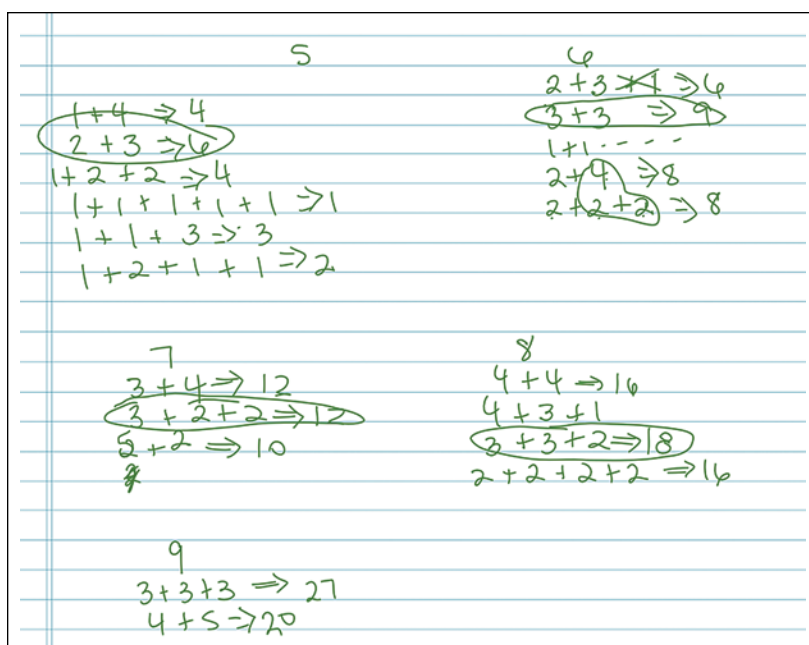 5
1+4 ⇒ 4
2 + 3 ⇒ 6
1+ 2 + 2 ⇒ 4
1 + 1 + 1 + 1 + 1 ⇒ 1
1 + 1 + 3 ⇒ 3
1 + 2 + 1 + 1 ⇒ 2
6
2 + 3 +1 ⇒ 6
3 + 3 ⇒ 9
1 + 1 - - - -
2 + 4 ⇒ 8
2 + 2 + 2 ⇒ 8
7
3 + 4 ⇒ 12
3 + 2 + 2 ⇒ 12
5 + 2 ⇒ 10
8
4 + 4 ⇒ 16
4 + 3 + 1
3 + 3 + 2 ⇒ 18
2 + 2 + 2 + 2 ⇒ 16
9
3 + 3 + 3 ⇒ 27
4 + 5 ⇒ 20